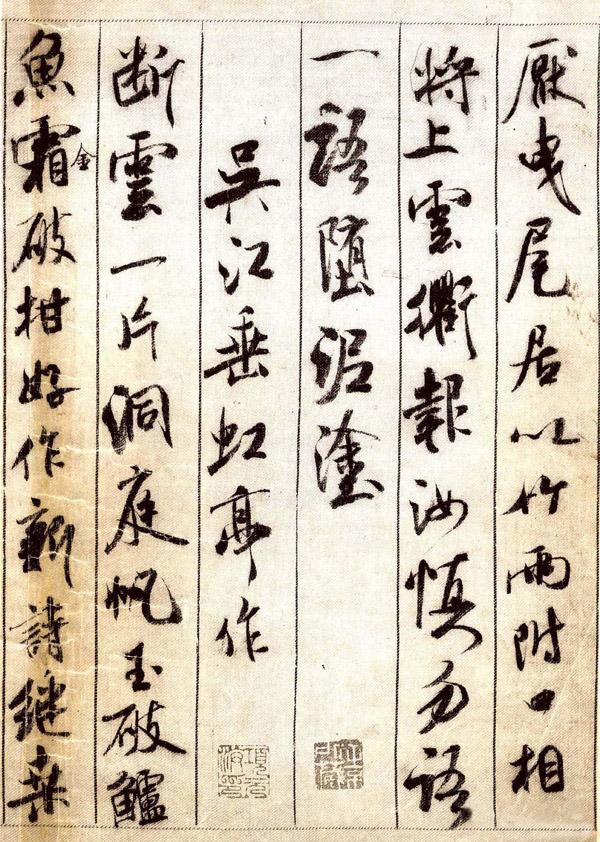 厭曳尾居以竹兩附口相
將上雲衢報汝慎勿語
一語墮泥塗
吳江垂虹亭作
断雲一片洞庭帆玉破鱸
魚霜金破柑好作新詩継桑